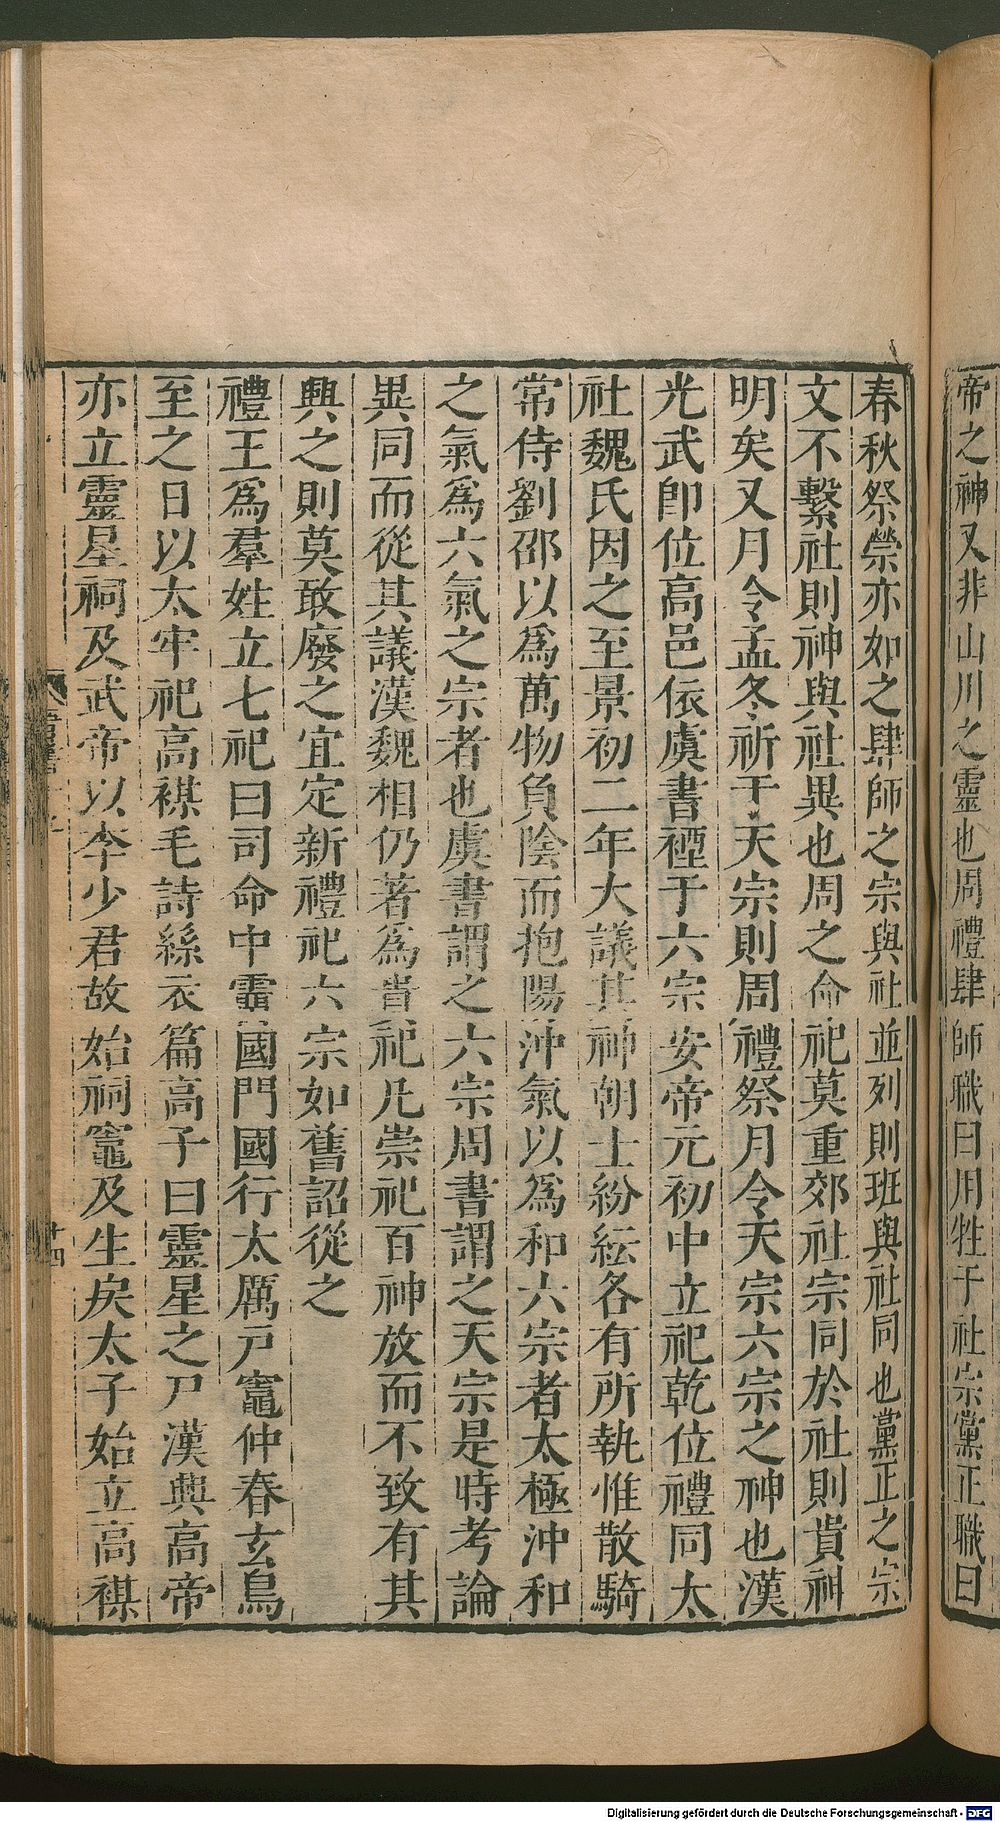 帝之神又非山川之靈也周禮肆師職曰用牲于社宗黨正職曰
春秋祭禜亦如之肆師之宗與社並列則班與社同也黨正之宗
文不繫社則神與社異也周之命祀莫重郊社宗同於社則貴神
明矣又月令孟冬祈于天宗則周禮祭月令天宗六宗之神也漢
光武即位高邑依虞書禋于六宗安帝元初中立祀乾位禮同太
社魏氏因之至景初二年大議其神朝士紛紜各有所執惟散騎
常侍劉邵以爲萬物負陰而抱陽沖氣以爲和六宗者太極沖和
之氣爲六氣之宗者也虞書謂之六宗周書謂之天宗是時考論
異同而從其議漢魏相仍著爲貴祀凡崇祀百神放而不致有其
興之則莫敢廢之宜定新禮祀六宗如舊詔從之
禮王爲羣姓立七祀曰司命中霤國門國行太厲戸竈仲春玄鳥
至之日以太牢祀高禖毛詩絲衣篇高子曰靈星之尸漢興高帝
亦立靈星祠及武帝以李少君故始祠竈及生戾太子始立高禖
十四
Digitalisierung gefördert durch die Deutsche Forschungsgemeinschaft - DFG